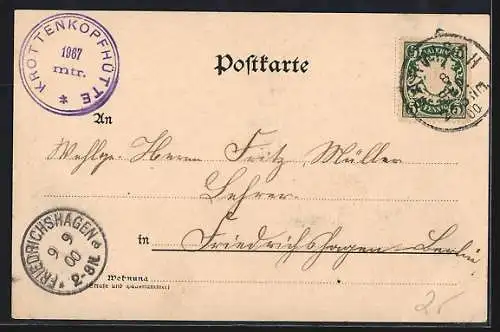 KROTTENKOPFHÜTTE
1967
mtr.
Postkarte
BAYERN
5 PFENNIG 5
00
An
Wohlge. Herrn Fritz Müller
Lehrer.
in Friedrichshagen-Berlin
FRIEDRICHSHAGEN
9 9
00
2-3N.
Wohnung
(Straße und Hausnummer)
25